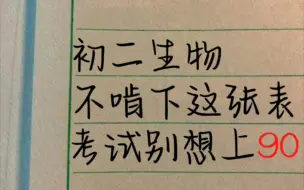 初二生物
不啃下这张表
考试别想上90